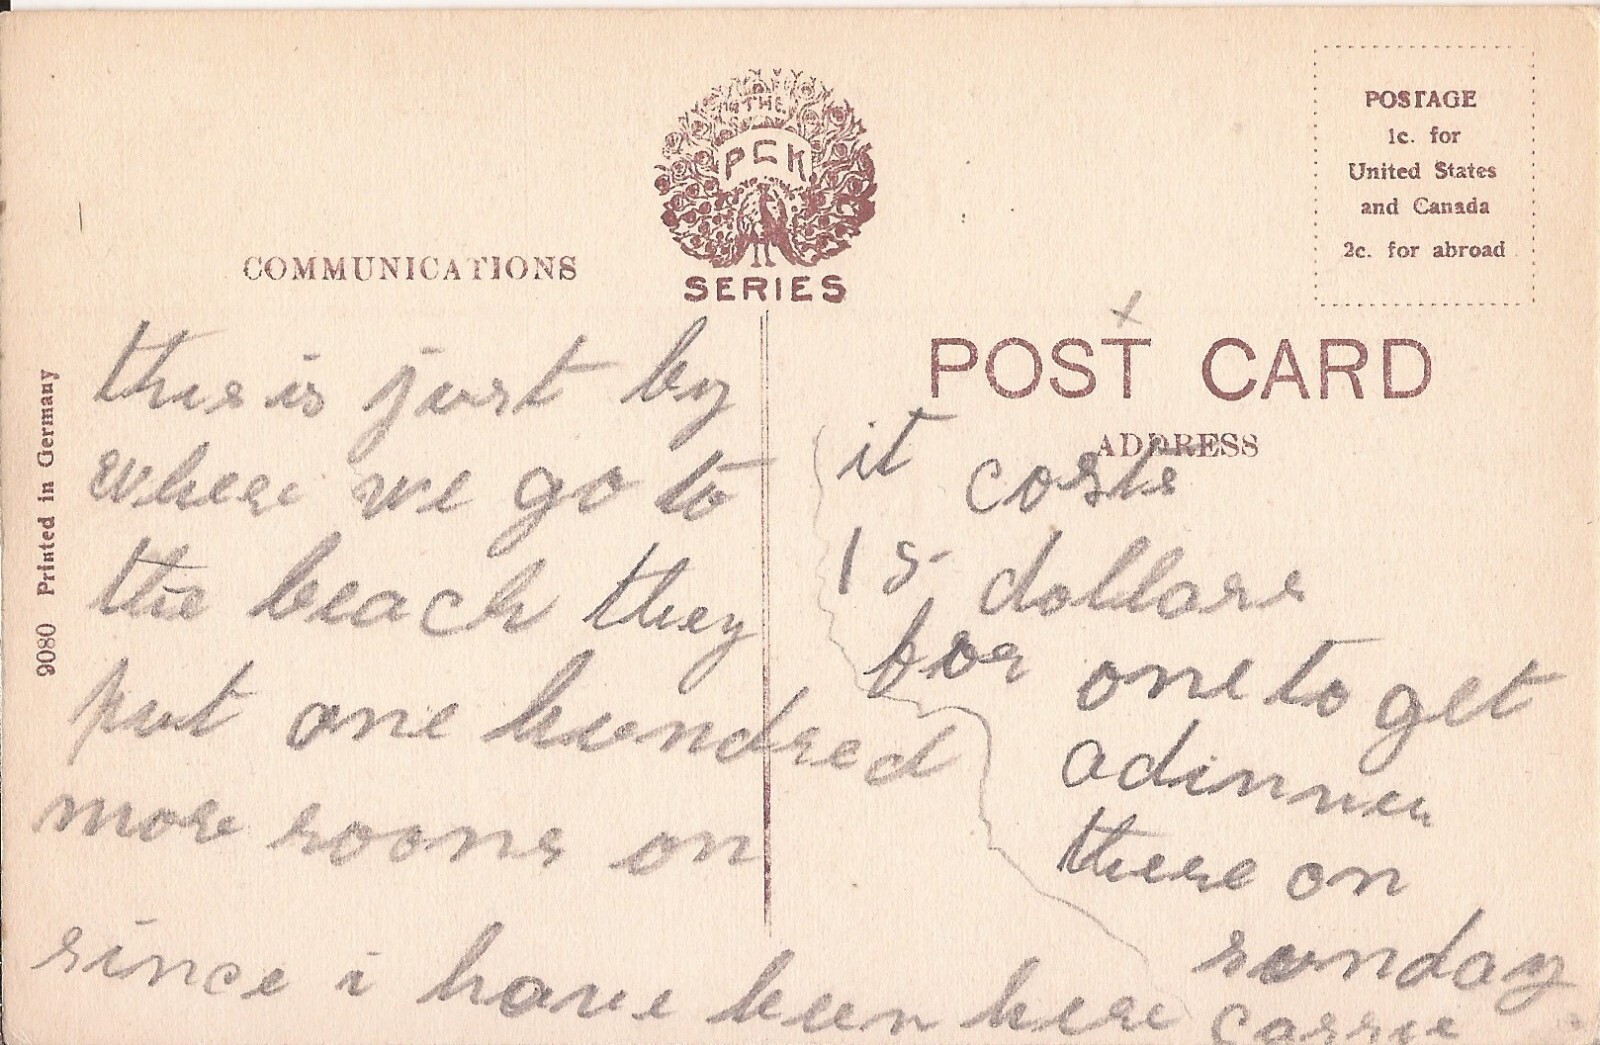 THE
PCK
SERIES
COMMUNICATIONS
POSTAGE
1c. for
United States
and Canada
2c. for abroad
POST CARD
ADDRESS
9080 Printed in Germany
this is just by
where we go to
the beach they
put one hundred
more rooms on
since i have been here
it costs
15 dollars
for one to get
a dinner
there on
sunday
Carrie